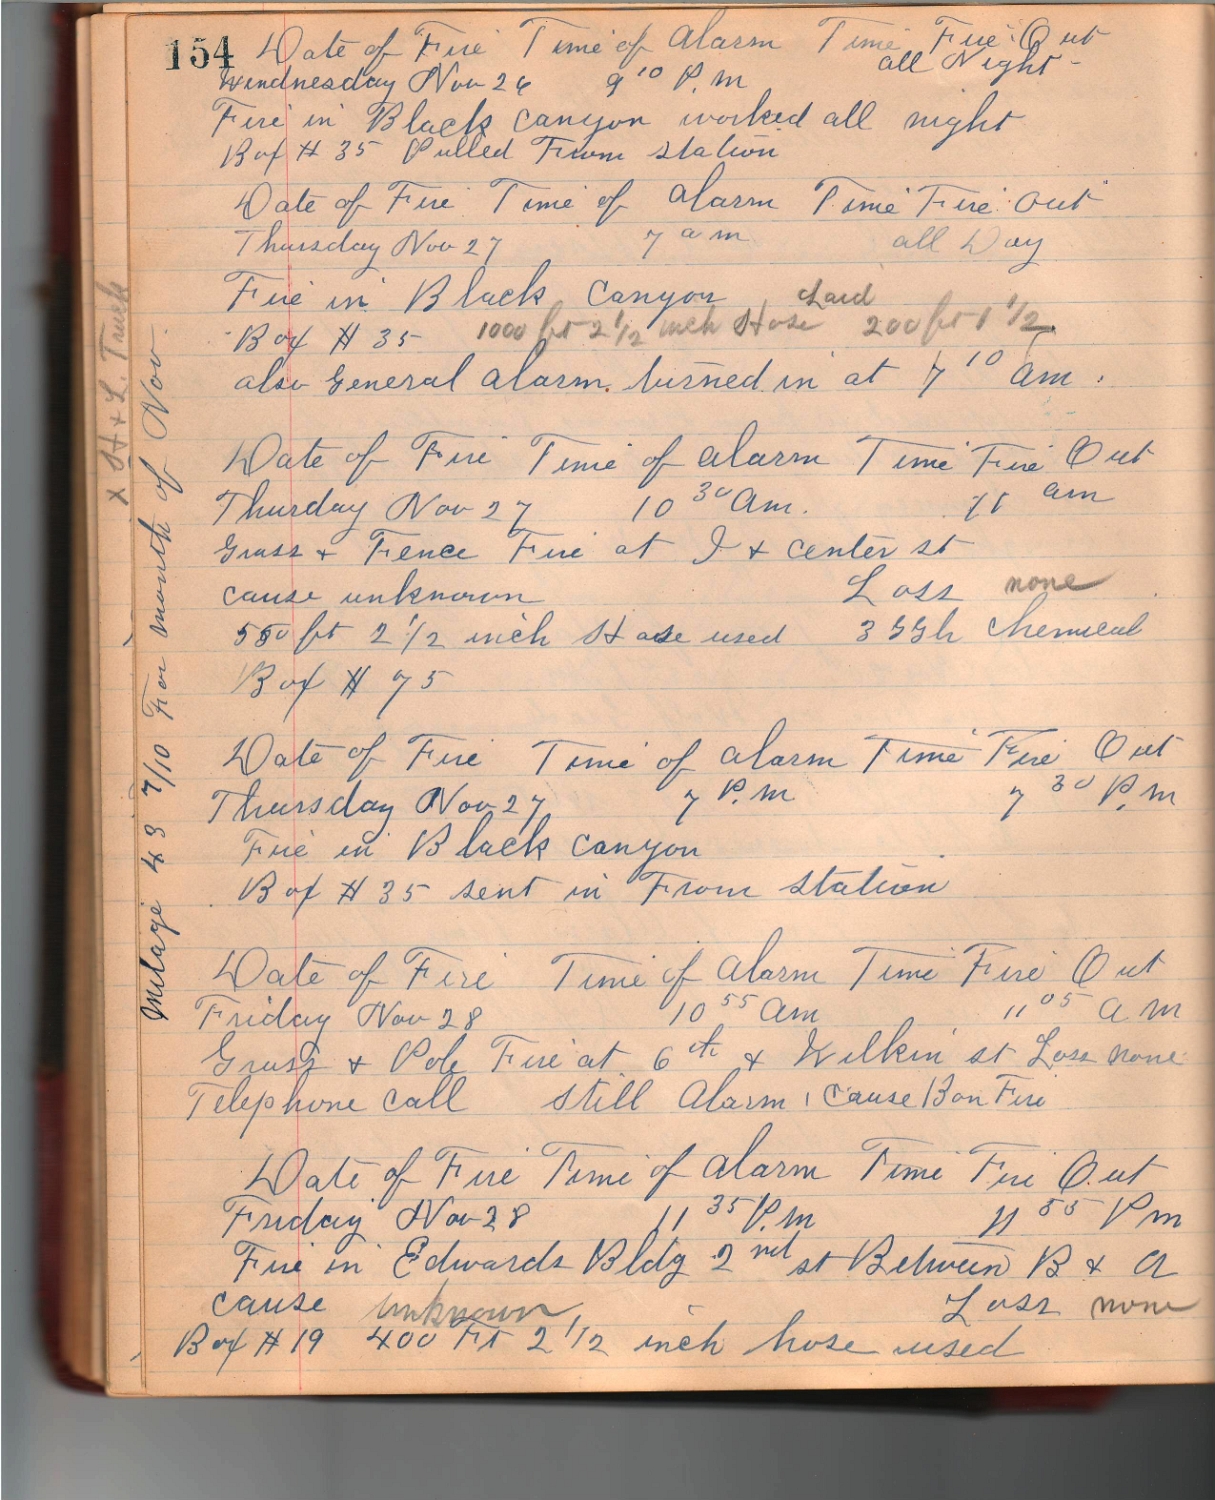 154
Date of Fire Time of Alarm Time Fire Out
Wendnesday Nov 26 9 10 P.m all Night -
Fire in Black canyon worked all night
Box # 35 Pulled From station
Date of Fire Time of alarm Time Fire out
Thursday Nov 27 7 am all Day
Fire in Black Canyon Laid
Box # 35 1000 ft 2 1/2 inch Hose 200 ft 1 1/2
also General alarm turned in at 7 10 am.
Date of Fire Time of alarm Time Fire Out
Thursday Nov 27 10 30 Am. 11 am
Grass & Fence Fire at I & center st
cause unknown Loss none
550 ft 2 1/2 inch Hose used 3 Chemical
Box # 75
Date of Fire Time of alarm Time Fire Out
Thursday Nov 27 7 P.m 7 30 P.m
Fire in Black canyon
Box # 35 sent in From station
Date of Fire Time of Alarm Time Fire Out
Friday Nov 28 10 55 am 11 05 a m
Grass & Pole Fire at 6th & Wilkin st Loss none
Telephone call still Alarm, Cause Bon Fire
Date of Fire Time of alarm Time Fire Out
Friday Nov 28 11 35 P.m 11 55 Pm
Fire in Edwards Bldg 2nd st Between B & A
cause unknown Loss none
Box # 19 400 Ft 2 1/2 inch hose used
Milage 43 7/10 For month of Nov.
x H & L. Truck